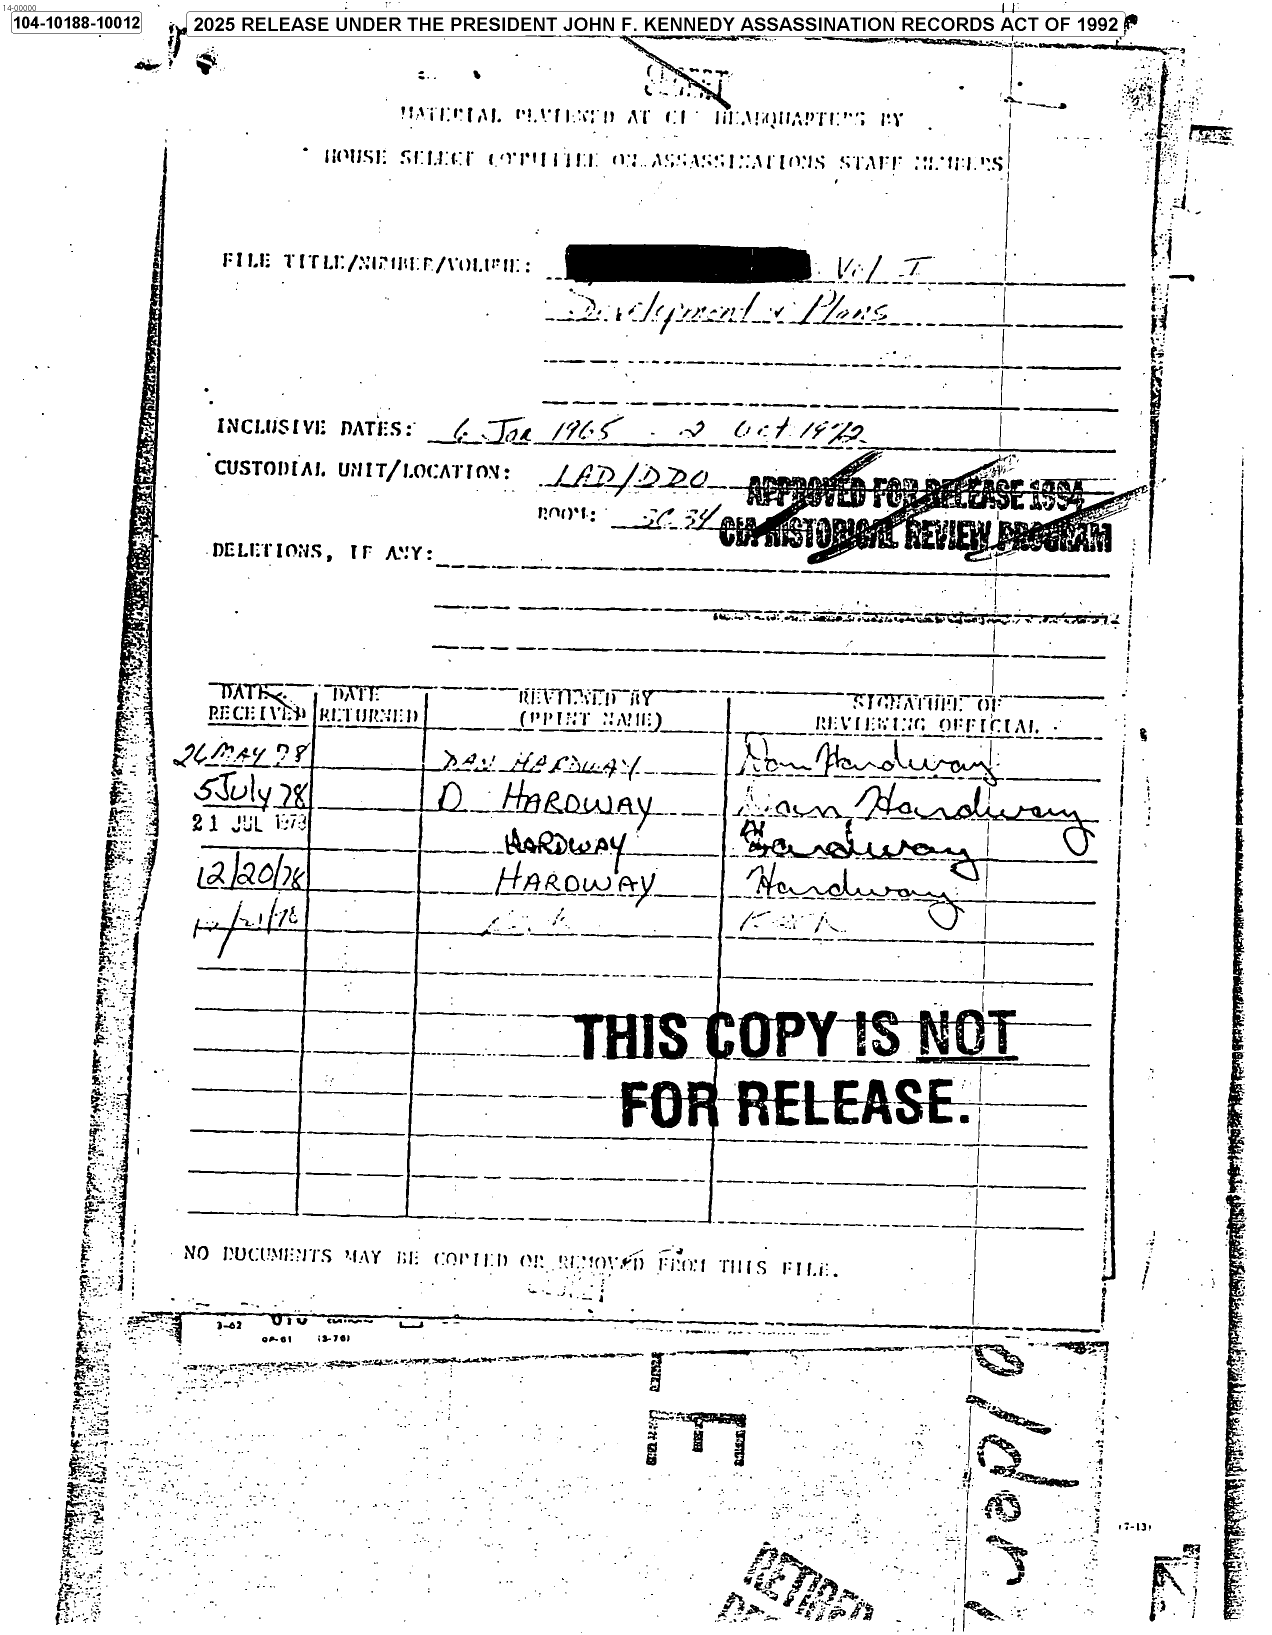 14-00000
104-10188-10012
2025 RELEASE UNDER THE PRESIDENT JOHN F. KENNEDY ASSASSINATION RECORDS ACT OF 1992
SECRET
MATERIAL REVIEWED AT CIA HEADQUARTERS BY
HOUSE SELECT COMMITTEE ON ASSASSINATIONS STAFF MEMBERS
FILE TITLE/NUMBER/VOLUME: Vol I
Development & Plans
INCLUSIVE DATES: 6 Jan 1965 - 2 Oct 1972
CUSTODIAL UNIT/LOCATION: LAD/DDO
ROOM: 3C 34
APPROVED FOR RELEASE 1994
CIA HISTORICAL REVIEW PROGRAM
DELETIONS, IF ANY:
DATE RECEIVED DATE RETURNED REVIEWED BY (PRINT NAME) SIGNATURE OF REVIEWING OFFICIAL
26 MAY 78 DAN HARDWAY Dan Hardway
5 July 78 D HARDWAY Dan Hardway
21 JUL 1978 HARDWAY Hardway
12/20/78 HARDWAY Hardway
12/21/78
THIS COPY IS NOT
FOR RELEASE.
NO DOCUMENTS MAY BE COPIED OR REMOVED FROM THIS FILE.
SECRET
3-62
OP-61 (3-76)
E
older
(7-13)
RETIRED